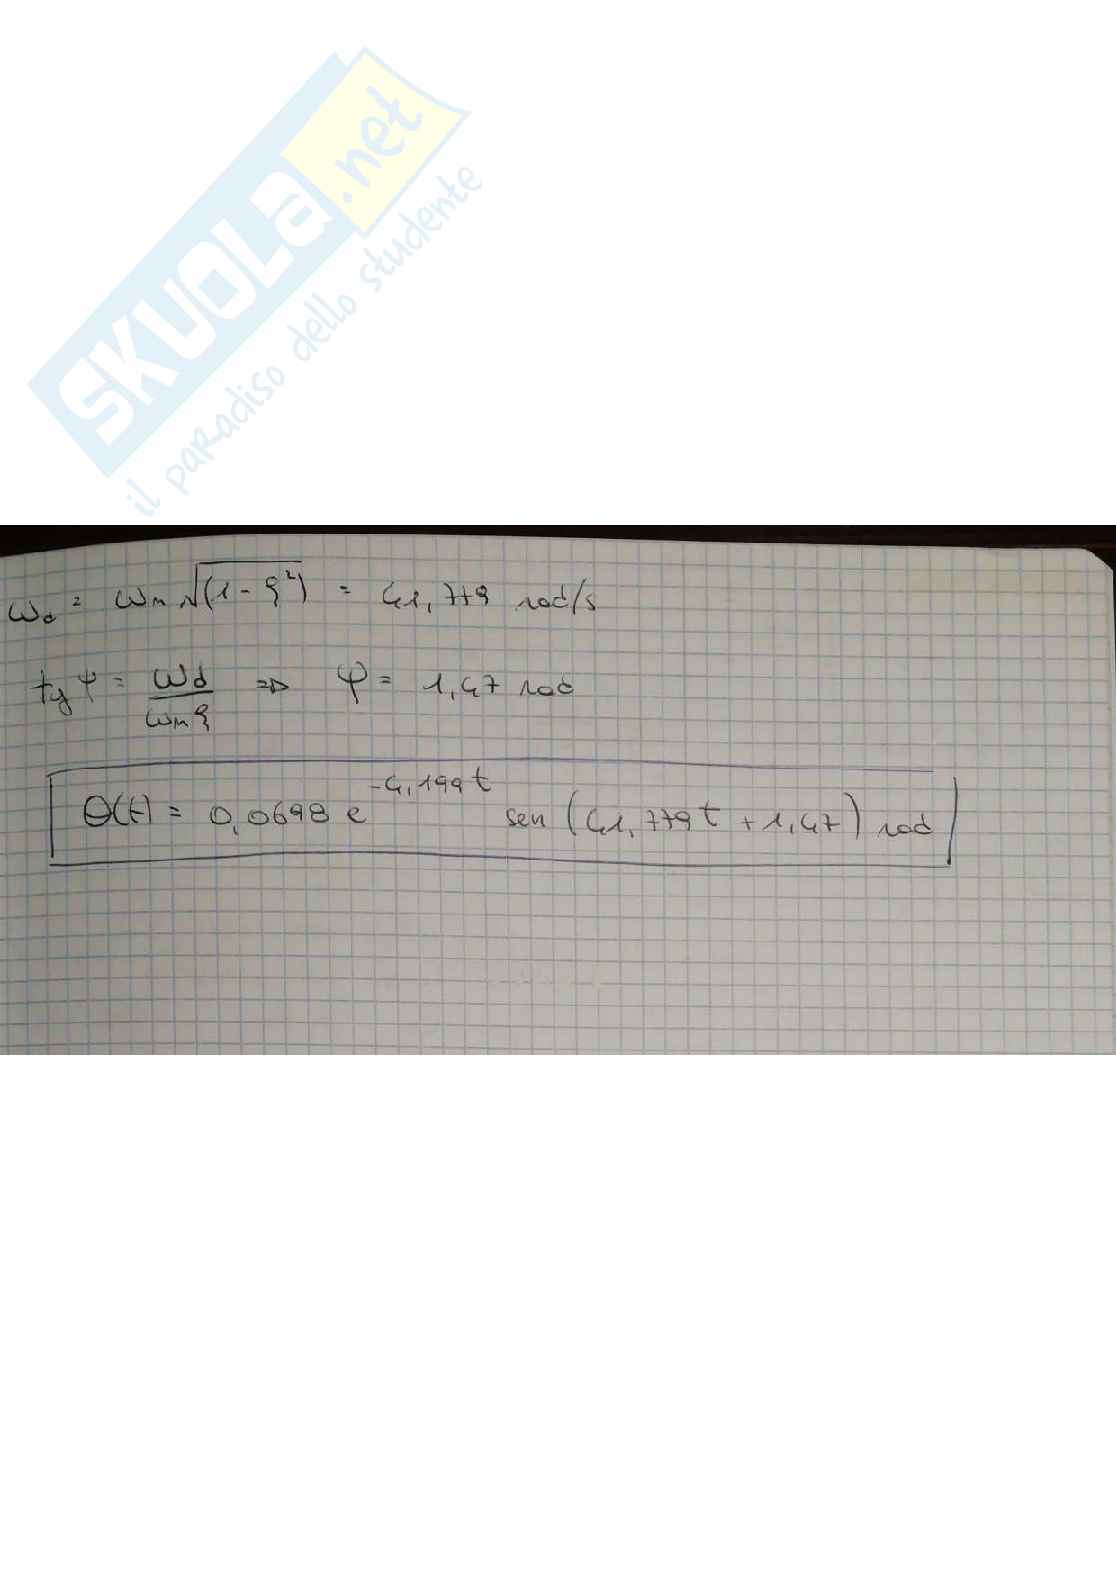 SKUOLA.net
il paradiso dello studente
ωd = ωn √(1 - ξ²) = 41,779 rad/s
tg φ = ωd / ωn ξ => φ = 1,47 rad
θ(t) = 0,0698 e^{-4,199t} sen (41,779t + 1,47) rad